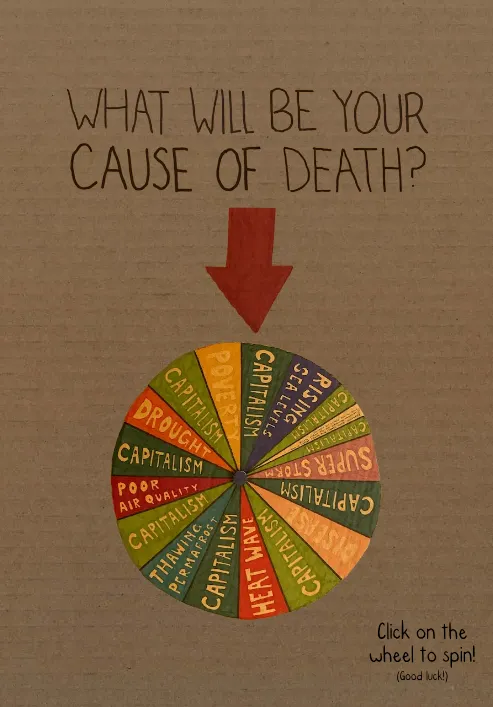 WHAT WILL BE YOUR
CAUSE OF DEATH?
CAPITALISM
RISING
SEA LEVELS
CAPITALISM
CAPITALISM
SUPER STORM
CAPITALISM
DISEASE
CAPITALISM
HEAT WAVE
CAPITALISM
THAWING
PERMAFROST
CAPITALISM
POOR
AIR QUALITY
CAPITALISM
DROUGHT
CAPITALISM
POVERTY
Click on the
wheel to spin!
(Good luck!)